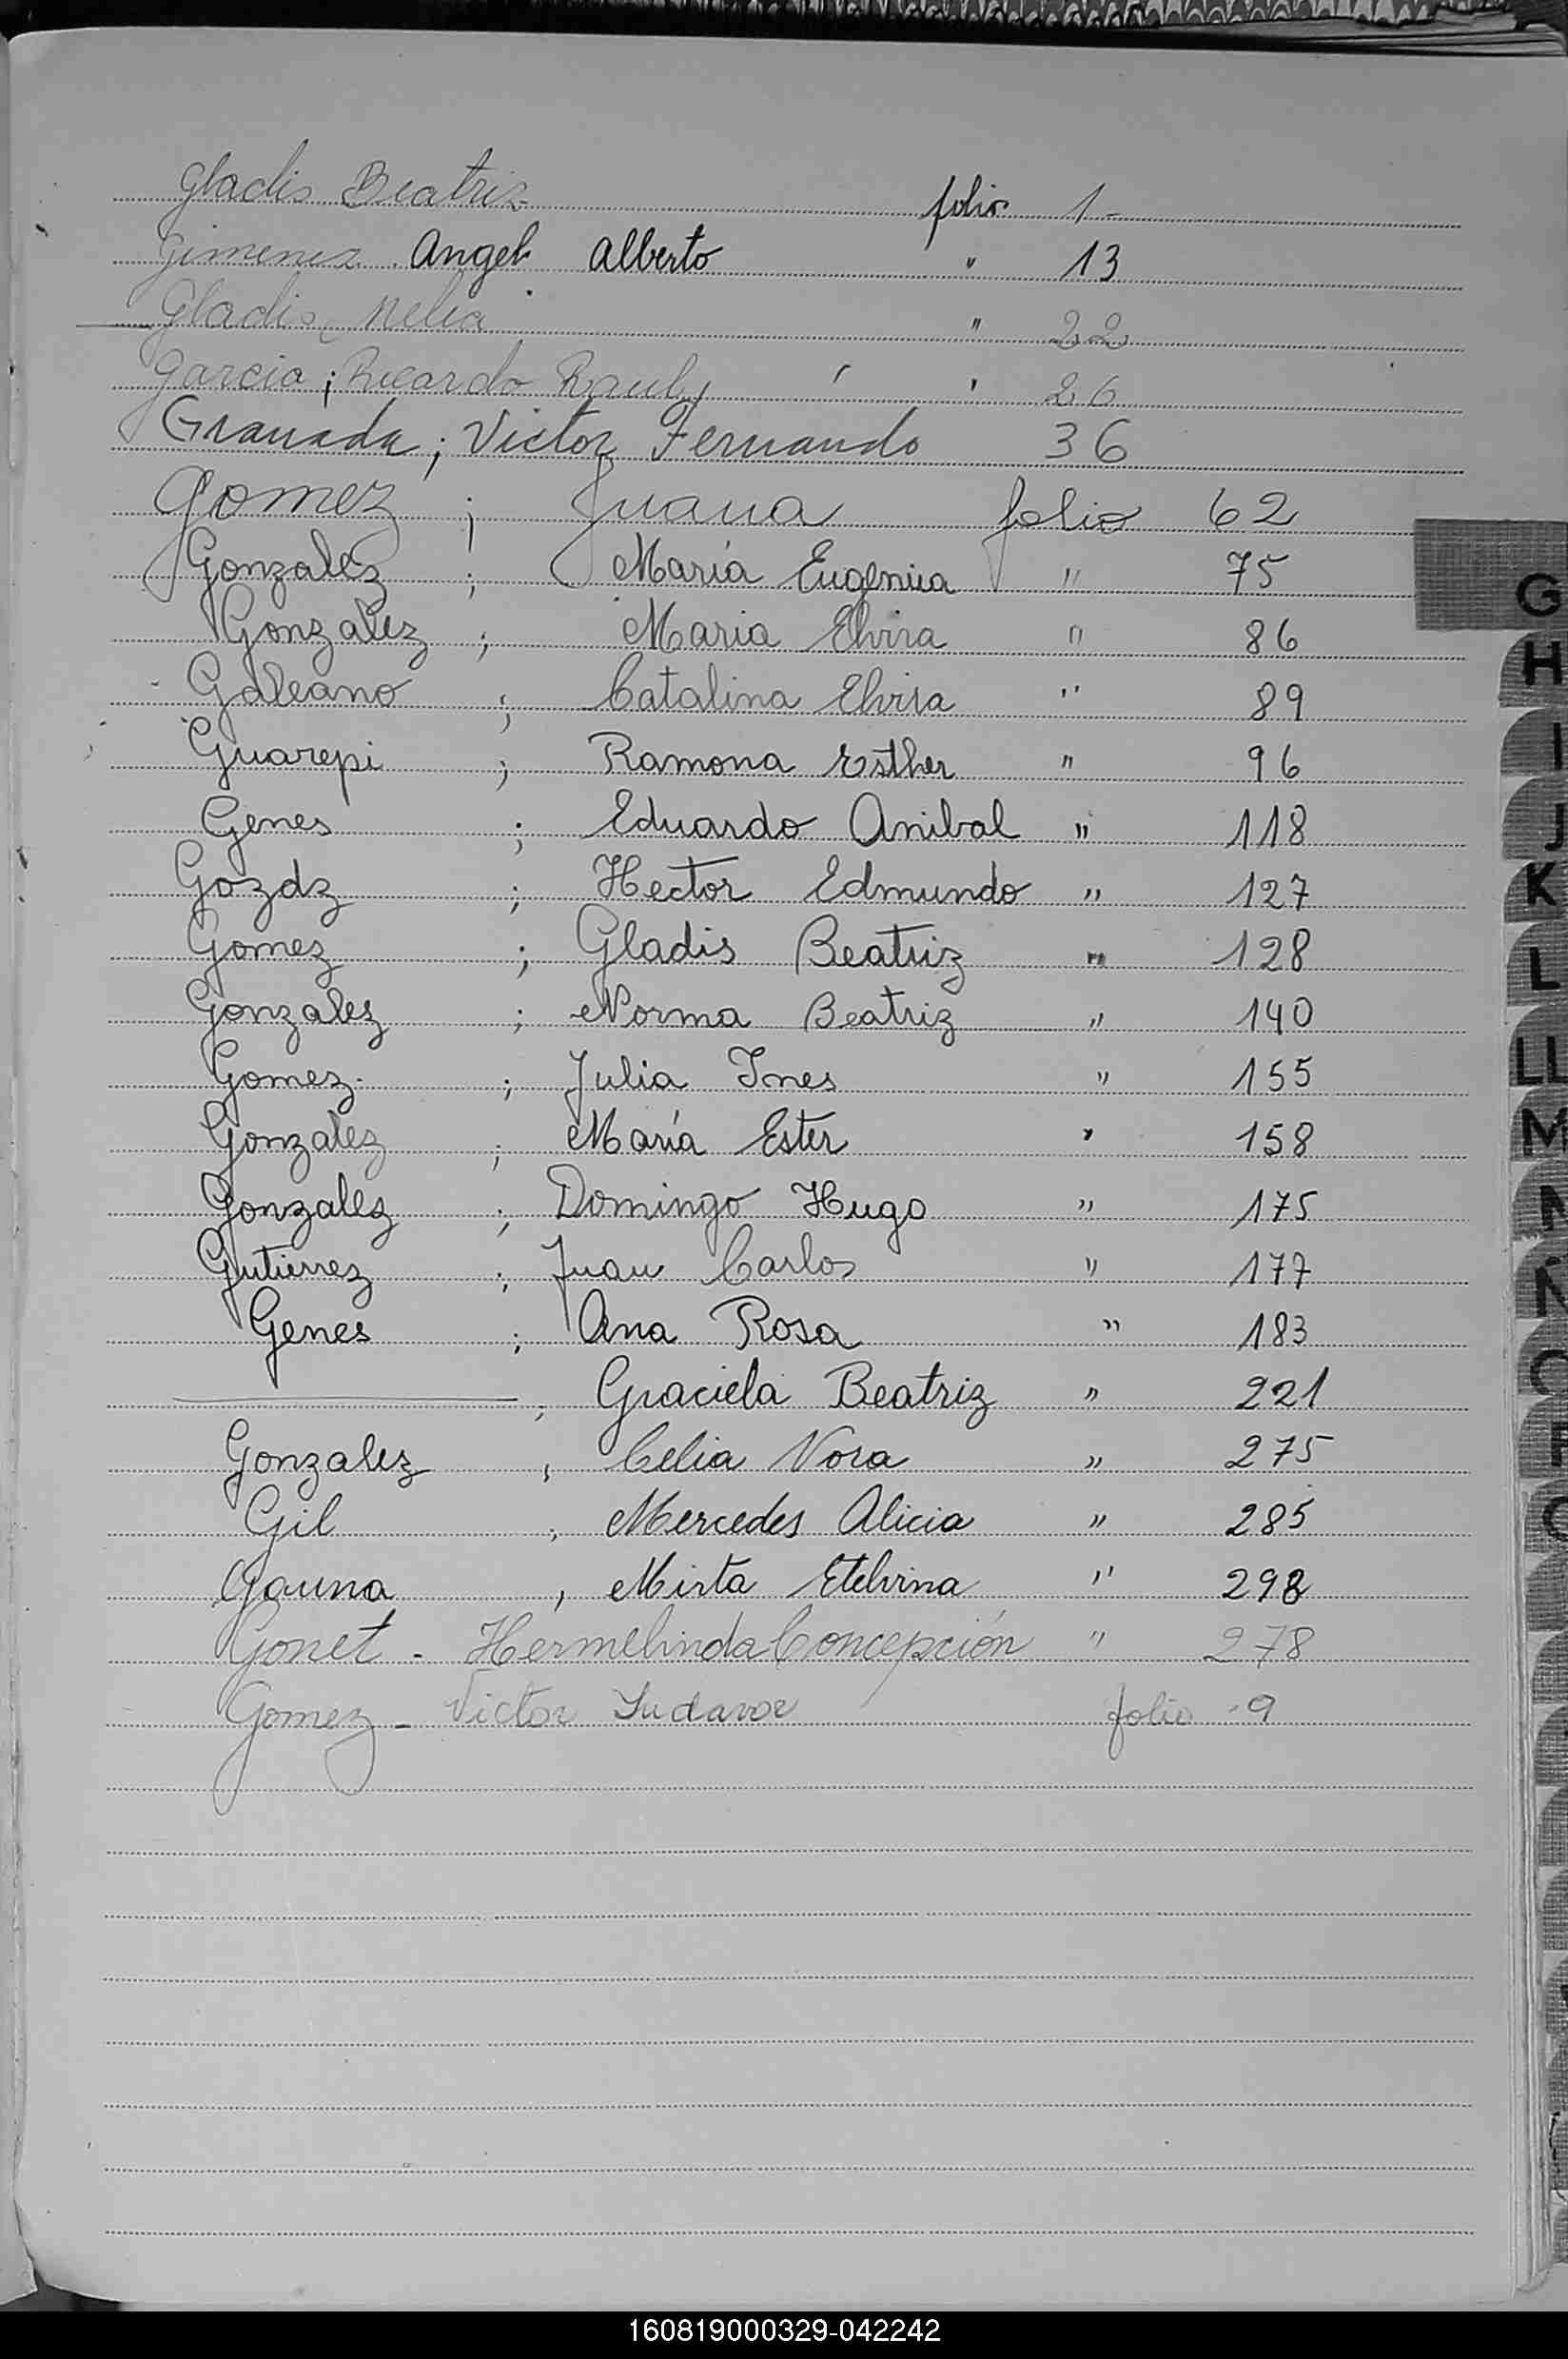 Gladis Beatriz folio 1-
Gimenez Angel Alberto " 13
Gladis Nelia " 22
Garcia; Ricardo Raul " 26
Granada; Victor Fernando 36
Gomez ; Juana folio 62
Gonzalez ; María Eugenia " 75
Gonzalez ; Maria Elvira " 86
Galeano ; Catalina Elvira " 89
Guarepi ; Ramona Esther " 96
Genes ; Eduardo Anibal " 118
Gozdz ; Hector Edmundo " 127
Gomez ; Gladis Beatriz " 128
Gonzalez ; Norma Beatriz " 140
Gomez ; Julia Ines " 155
Gonzalez ; María Ester " 158
Gonzalez ; Domingo Hugo " 175
Gutierrez ; Juan Carlos " 177
Genes ; Ana Rosa " 183
, Graciela Beatriz " 221
Gonzalez , Celia Nora " 275
Gil , Mercedes Alicia " 285
Gauna , Mirta Etelvina " 298
Gonet - Hermelinda Concepción " 278
Gomez - Victor folio 9
G
H
I
J
K
L
LL
M
N
Ñ
160819000329-042242